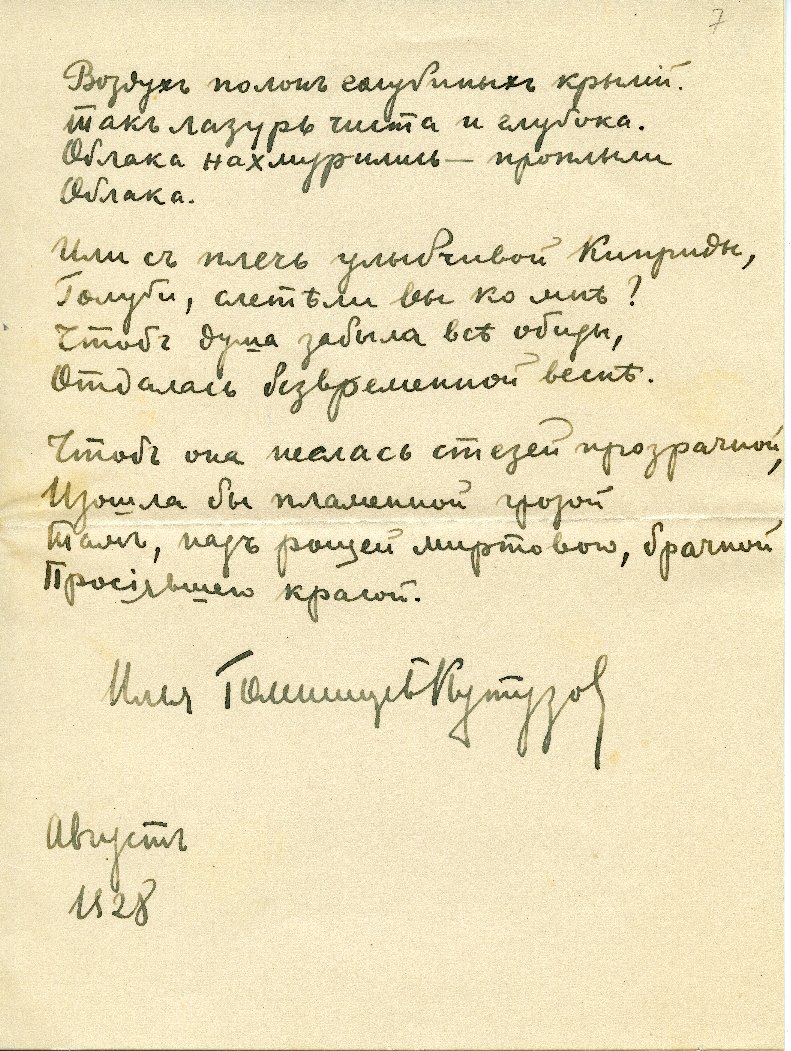 7
Воздухъ полонъ голубиныхъ крылій.
Такъ лазурь чиста и глубока.
Облака нахмурились — проплыли
Облака.
Или съ плечъ улыбчивой Киприды,
Голуби, слетѣли вы ко мнѣ?
Чтобъ душа забыла всѣ обиды,
Отдалась безвременной веснѣ.
Чтобъ она неслась стезей прозрачной,
Изошла бы пламенной грозой
Тамъ, надъ рощей миртовою, брачной
Просіявшею красой.
Илья Голенищевъ Кутузов
Августъ
1928